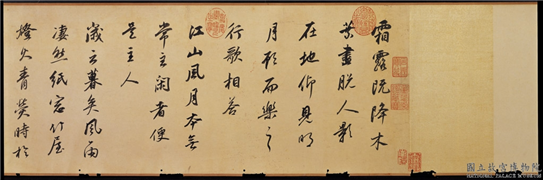 霜露既降木
葉盡脫人影
在地仰見明
月顧而樂之
行歌相答
江山風月本無
常主閑者便
是主人
歲云暮矣風雨
淒然紙窗竹屋
燈火青熒時於
國立故宮博物院
NATIONAL PALACE MUSEUM